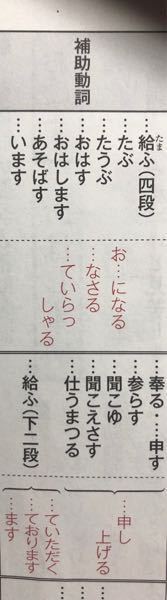 補助動詞
…給ふ(四段)
たま
…たぶ
…たうぶ
…おはす
…おはします
…あそばす
…います
お…になる
…なさる
…ていらっ
しゃる
…奉る …申す
…参らす
…聞こゆ
…聞こえさす
…仕うまつる
…申し
上げる
…給ふ(下二段)
…ていただく
…ております
…ます